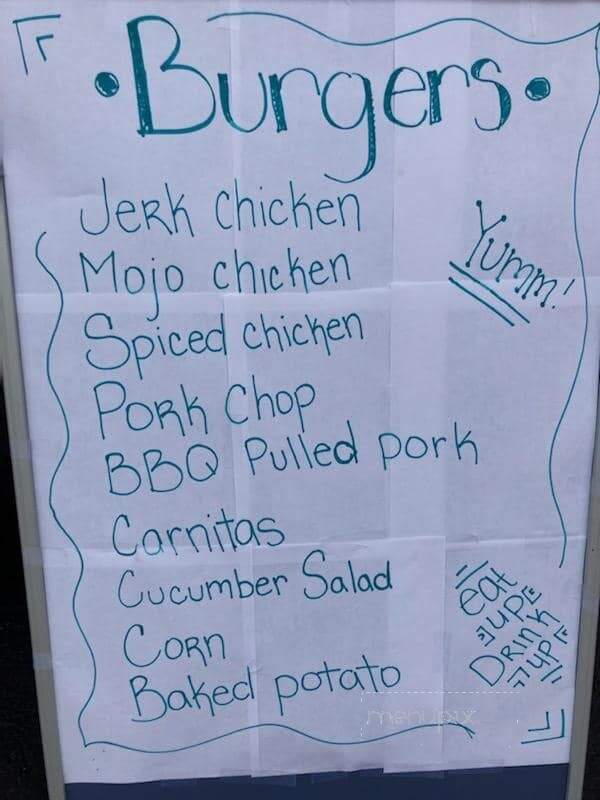 • Burgers •
Jerk chicken
Mojo chicken
Yumm!
Spiced chicken
Pork Chop
BBQ Pulled pork
Carnitas
Cucumber Salad
Corn
Baked potato
eat
up
Drink
up
menupix